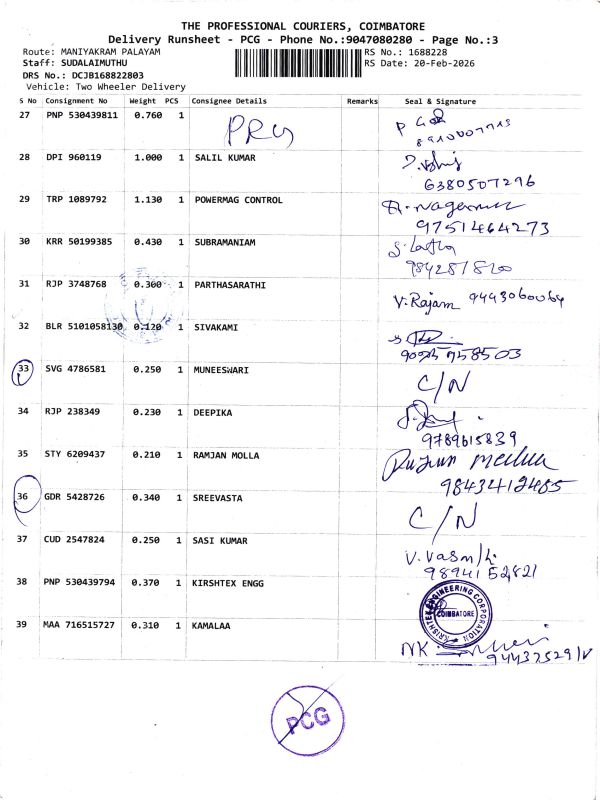 THE PROFESSIONAL COURIERS, COIMBATORE
Delivery Runsheet - PCG - Phone No.:9047080280 - Page No.:3
Route: MANIYAKRAM PALAYAM
RS No.: 1688228
Staff: SUDALAIMUTHU
RS Date: 20-Feb-2026
DRS No.: DCJB168822803
Vehicle: Two Wheeler Delivery
S No Consignment No Weight PCS Consignee Details Remarks Seal & Signature
27 PNP 530439811 0.760 1
28 DPI 960119 1.000 1 SALIL KUMAR
6380507296
29 TRP 1089792 1.130 1 POWERMAG CONTROL
9751464273
30 KRR 50199385 0.430 1 SUBRAMANIAM
S. Latha
31 RJP 3748768 0.300 1 PARTHASARATHI
V. Rajam 9443060064
32 BLR 5101058130 0.120 1 SIVAKAMI
33 SVG 4786581 0.250 1 MUNEESWARI C/N
34 RJP 238349 0.230 1 DEEPIKA
9789615839
35 STY 6209437 0.210 1 RAMJAN MOLLA
9843412485
36 GDR 5428726 0.340 1 SREEVASTA C/N
37 CUD 2547824 0.250 1 SASI KUMAR
9894152821
38 PNP 530439794 0.370 1 KIRSHTEX ENGG
ENGINEERING CORPORATION
COIMBATORE
39 MAA 716515727 0.310 1 KAMALAA
PCG